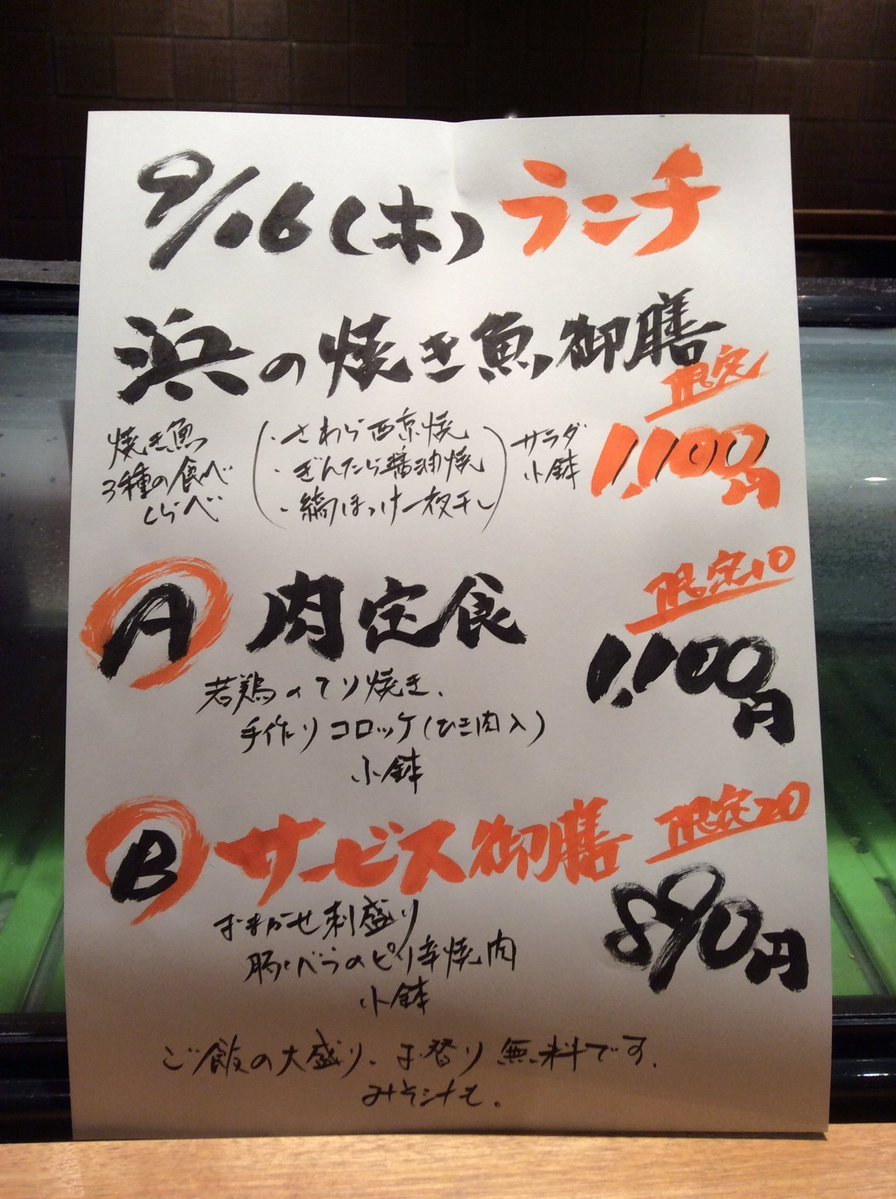 9/16(木) ランチ
浜の焼き魚御膳
限定
焼き魚
3種の食べ
くらべ
・さわら西京焼
・ぎんたら醤油焼
・縞ほっけ一夜干し
サラダ
小鉢
1,100円
A 肉定食
限定10
1,100円
若鶏のてり焼き、
手作りコロッケ(ひき肉入)
小鉢
B サービス御膳 限定20
890円
おまかせ刺盛り
豚バラのピリ辛焼肉
小鉢
ご飯の大盛り、お替り無料です。
みそ汁も。